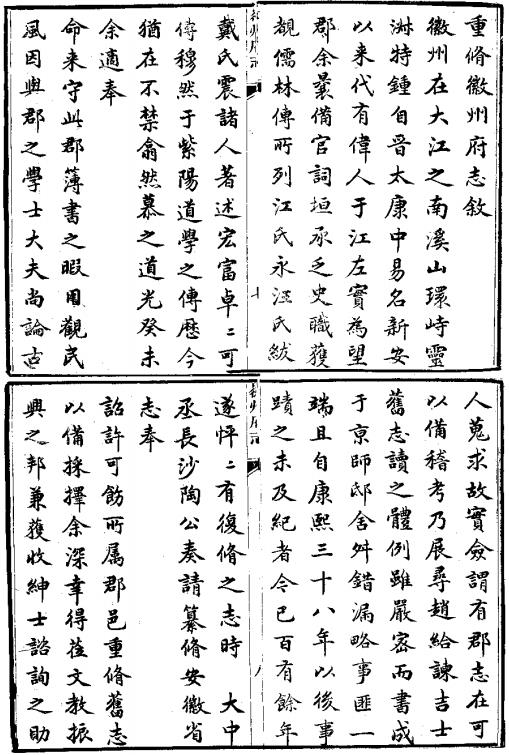 重脩徽州府志敘
徽州在大江之南溪山環峙靈
淑特鍾自晉太康中易名新安
以来代有偉人于江左實為望
郡余曩備官詞垣承乏史職獲
覩儒林傳所列江氏永汪氏紱
戴氏震諸人著述宏富卓〻可
傳穆然于紫陽道學之傳歷今
猶在不禁翕然慕之道光癸未
余適奉
命来守此郡簿書之暇用觀民
風因與郡之學士大夫尚論古
人蒐求故實僉謂有郡志在可
以備稽考乃展尋趙給諫吉士
舊志讀之體例雖嚴密而書成
于京師邸舍舛錯漏略事匪一
端且自康熙三十八年以後事
蹟之未及紀者今已百有餘年
遂怦〻有復脩之志時 大中
丞長沙陶公奏請纂脩安徽省
志奉
詔許可飭所属郡邑重脩舊志
以備採擇余深幸得蒞文教振
興之邦兼獲收紳士諮詢之助